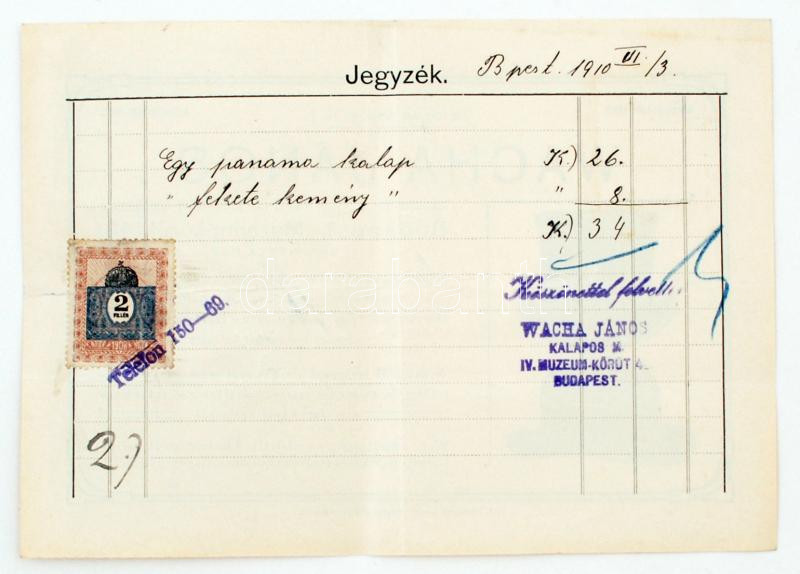 Jegyzék. Bpest. 1910 VI/3.
Egy panama kalap K.) 26.
" fekete kemény " " 8.
K.) 34
Köszönettel felvett
WACHA JÁNOS
KALAPOS M.
IV. MUZEUM-KÖRÚT 4.
BUDAPEST.
2
FILLÉR
Telefon 150—69.
2.)
darabanth